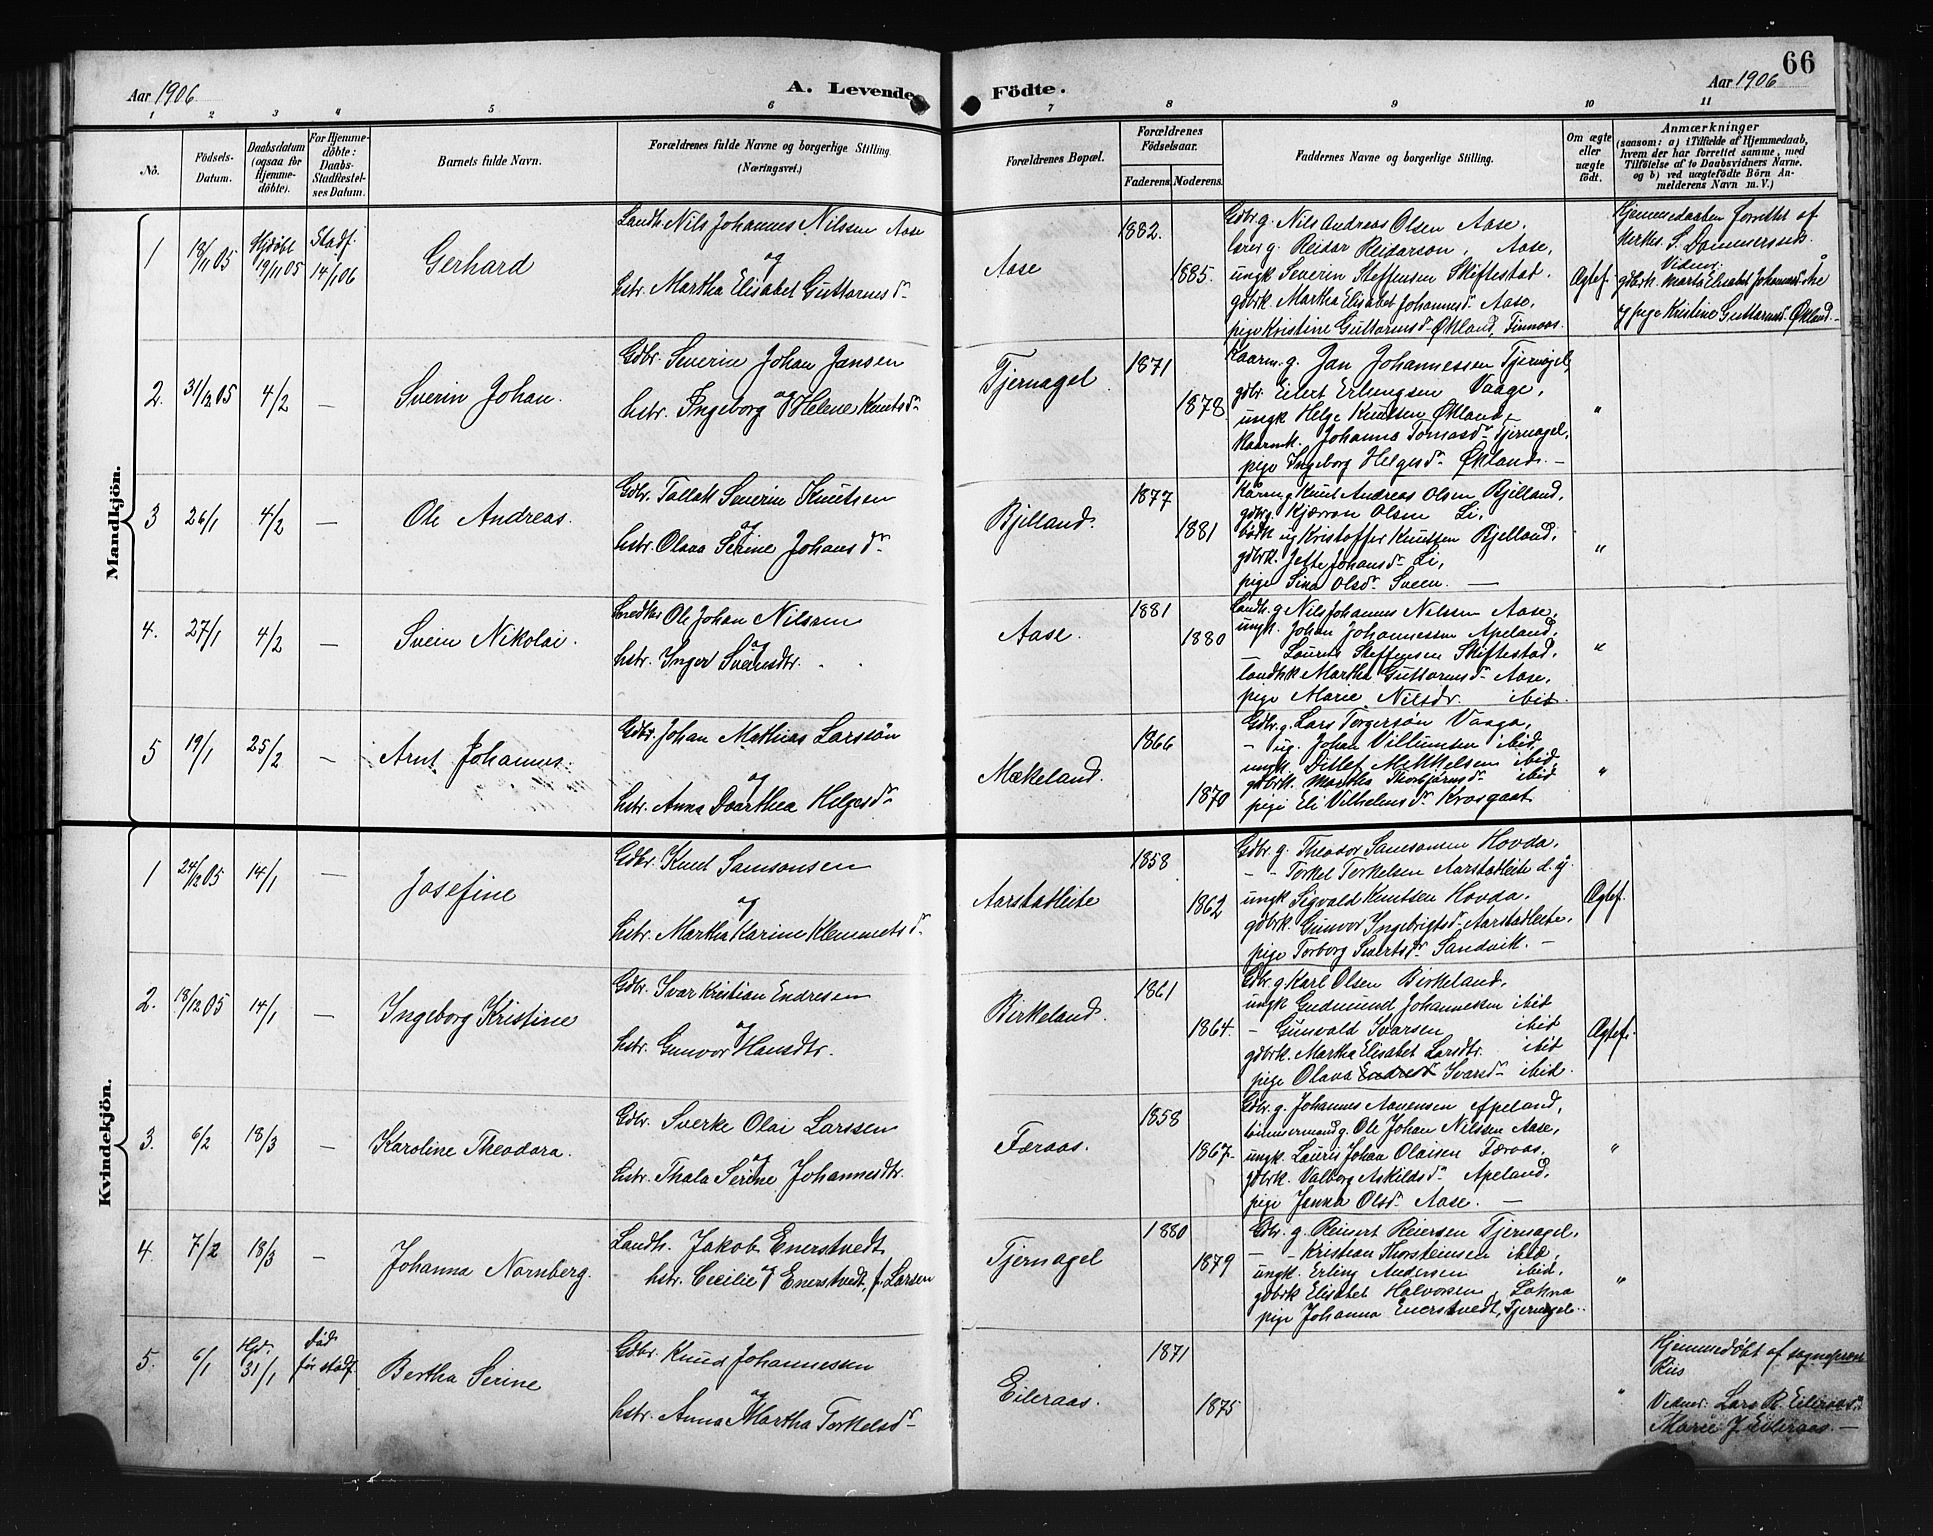 66
Aar 1906
A. Levende Födte.
Aar 1906
1 2 3 4 5 6 7 8 9 10 11
No.
Födsels-Datum.
Daabsdatum (ogsaa for Hjemme-döbte).
For Hjemme-döbte: Daabs-Stadfæstel-ses Datum.
Barnets fulde Navn.
Forældrenes fulde Navne og borgerlige Stilling.
(Næringsvei.)
Forældrenes Bopæl.
Forældrenes Födselsaar.
Faderens. Moderens.
Faddernes Navne og borgerlige Stilling.
Om ægte eller uægte födt.
Anmærkninger
(saasom: a) i Tilfælde af Hjemmedaab,
hvem der har forrettet samme, med
Tilföielse af to Daabsvidners Navne.
og b) ved uægtefödte Börn An-
melderens Navn m. V.)
Mandkjön.
1 18/11 05 Hjdøbt 19/11 05 Stadf. 14/1 06
Gerhard
Landh. Nils Johannes Nilssen Aase
og
hstr. Martha Elisabet Guttormsdr
Aase
1882.
1885.
Gdbr. g. Nils Andreas Olsen Aase,
g. Reidar Reidarson, Aase,
ungk Severin Steffensen Skiftestad.
gdbrk. Martha Elisabet Johannesdr Aase,
pige Kristine Guttormsdr Økland, Finnaas.
Ægtef.
Hjemmedaaben forrettet af
S. Dommersnes.
Vidner:
gdbrk. Marta Elisabet Johannesdr Åse
og pige Kristine Guttormsdr Økland
2. 31/12 05 4/2 —
Sverin Johan.
Gdbr. Severin Johan Jansen
og
hstr. Ingeborg Helene Knutsdr
Tjernagel
1871
1878
Kaarm. g. Jan Johannessen Tjernagel,
gdbr. Eilert Erlingsen Vaage,
ungk Helge Knutsen Økland,
Kaarmk. Johanna Tomasdr Tjernagel,
pige Ingeborg Helgesdr Økland. —
"
3 26/1 4/2 —
Ole Andreas.
Gdbr. Tallak Severin Knutsen
og
hstr. Olava Serine Johansdr
Bjelland.
1877
1881
Kårm. g Knut Andreas Olsen Bjelland,
gdbr g. Kjærran Olsen Li,
ug Kristoffer Knutsen Bjelland,
gdbrk. Jette Johansdr Li,
pige Sina Olsdr Sveen. —
"
4. 27/1 4/2 —
Svein Nikolai.
Snedker Ole Johan Nilssen
og
hstr. Inger Sveinsdtr.
Aase.
1881
1880
Landh. g Nils Johannes Nilssen Aase,
ungk. Johan Johannessen Apeland,
— Laurits Steffensen Skiftestad.
landhk Martha Guttormsdr Aase,
pige Marie Nilsdr. ibid.
"
5 19/1 25/2 —
Arnt Johannes.
Gdbr. Johan Mathias Larssøn
og
hstr. Anna Dorthea Helgesdr
Mækeland.
1866
1870
Gdbr. g. Lars Torgersøn Vaaga,
— ug. Johan Villumsen ibid,
ungk Ditlef Mikkelsen ibid,
gdbrk. Martha Thorbjørnsdr ibid
pige Eli Vilhelmsdr Krosgaat.
"
Kvindekjön.
1 24/12 05 14/1 —
Josefine
Gdbr. Knud Samsonsen
og
hstr. Martha Karine Klemmetsdr
Aarstadleite
1858
1862
Gdbr. g. Theodor Samsonsen Hovda,
— Torkel Torkelsen Aarstadleite d. y.
ungk Sigvald Knutsen Hovda,
gdbrk. Gunvor Ingebrigtsdr Aarstadleite,
pige Torborg Sivertsdr Sandvik. —
Ægtef.
2. 18/12 05 14/1 —
Ingeborg Kristine
Gdbr. Ivar Kristian Endresen
og
hstr. Gunvor Hansdtr.
Birkeland.
1861
1864.
Gdbr. g Karl Olsen Birkeland,
ungk Gudmund Johannessen ibid
— Gunvald Ivarsen ibid
gdbrk. Martha Elisabet Larsdtr. ibid
pige Olava Endresdr Ivarsdr ibid.
Ægtef.
3. 6/2 18/3 —
Karoline Theodora.
Gdbr. Sverke Olai Larssen
og
hstr. Thala Serine Johannesdtr.
Færaas.
1858
1867.
Gdbr. g. Johannes Aanensen Apeland,
tømmermand g. Ole Johan Nilssen Aase,
ungk. Laurits Johan Olaisen Færaas,
gdbrk. Valborg Askildsdr Apeland,
pige Janna Olsdr Aase. —
"
4. 7/2 18/3 —
Johanna Nornberg.
Landh. Jakob Enerstvedt
og
hstr. Cecilie Enerstvedt, f. Larsen
Tjernagel
1880
1879
Gdbr. g. Reinert Reiersen Tjernagel.
— Kristian Thorsteinsen ibid,
ungk. Erling Andersen ibid.
gdbrk Elisabet Halvorsen,
pige Johanna Enerstvedt, Tjernagel.
"
5. 6/1 Hjd. 31/1 død før stadf.
Bertha Serine
Gdbr. Knud Johannessen
og
hstr. Anna Martha Torkelsdr
Eileraas.
1871
1875
"
Hjemmedøbt af sogneprest
Riis
Vidner: Lars R. Eileraas,
Marie J. Eileraas. —